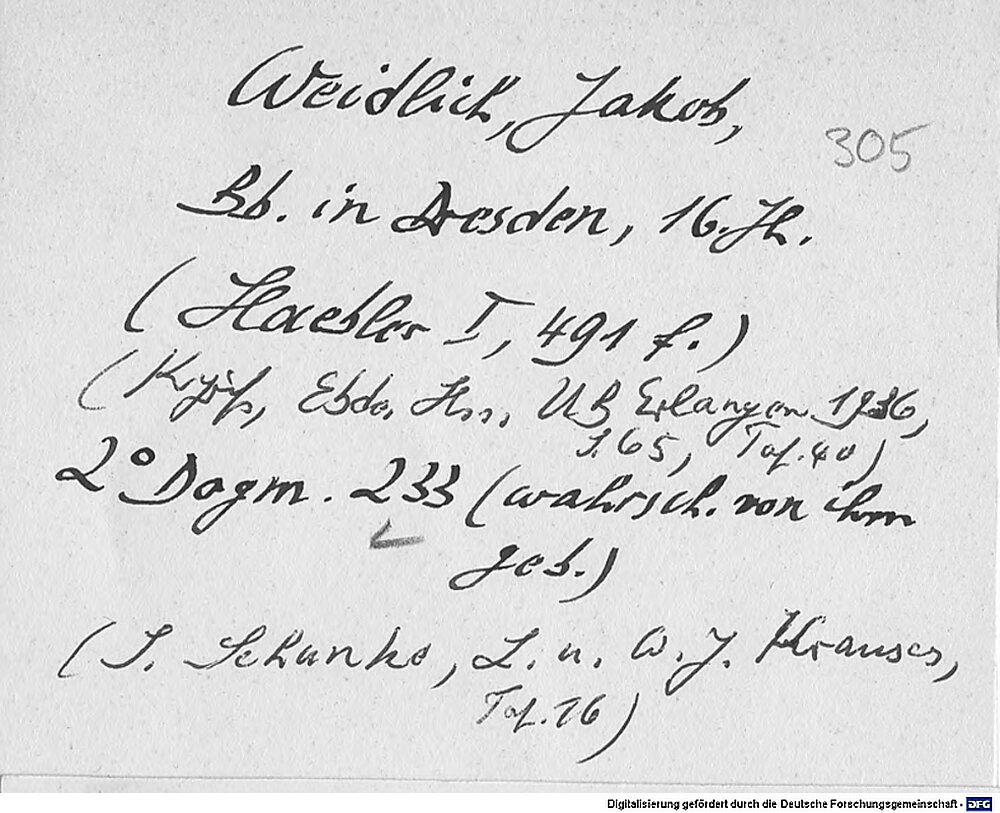 Weidlich, Jakob,
305
Bb. in Dresden, 16. Jh.
(Haebler I, 491 f.)
(Kyriß, Ebde. Hss. UB Erlangen 1936,
S. 65, Taf. 40)
2° Dogm. 233 (wahrsch. von ihm
geb.)
(S. Schunke, L. u. W. J. Krauses,
Taf. 16)
Digitalisierung gefördert durch die Deutsche Forschungsgemeinschaft - DFG